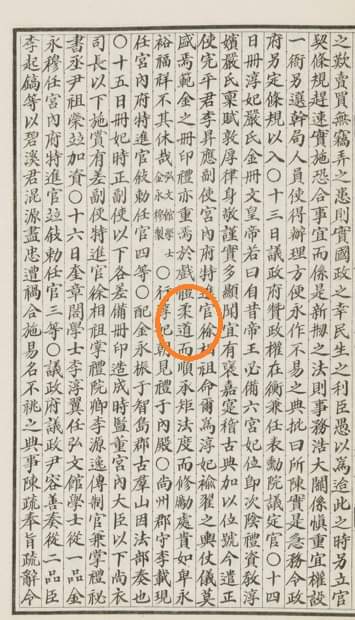 之欺賣買無竊弄之患則實國政之幸民生之利臣愚以爲此時另立官
契條規趕速實施恐合事宜而係是新刱之法則事務浩大關係愼重宜權設
一衙另選幹局人員使得辦理方便永作不易之典批曰所陳實是急務令政
府另定條規以入○十三日議政府贊政權在衡兼任表勳院議定官○十四
日冊淳妃嚴氏金冊文皇帝若曰自昔帝王必備六宮妃位卽次陰禮資敎淳
嬪嚴氏稟賦敦厚律身敬謹實多顯聞宜有褒嘉寔稽古典加以位號今遣正
使完平君李昇應副使宮內府特進官徐相祖命爾爲淳妃褕翟之輿仗儀莫
盛焉范金之冊印禮亦重焉於戲體柔道而順承矩法度而修勵處貴如卑永
裕福祥不其休哉弘文館學士金永穆製○行淳妃朝見禮于內殿○尙州郡守李載現
任宮內府特進官敍勅任官四等○配金永振于智島郡古群山因法部奏也
○十五日冊妃時正副使以下各差備冊印造成時監董宮內大臣以下尙衣
司長以下施賞有差副使特進官徐相祖掌禮院卿李源逸傳制官兼掌禮秘
書丞尹祖榮竝加資○十六日奎章閣學士李淳翼任弘文館學士從一品金
永穆任宮內府特進官竝敍勅任官三等○議政府議政尹容善奏從二品臣
李起鎬等以碧溪君混源盡忠遭禍合施易名不祧之典事陳疏奉旨疏辭令